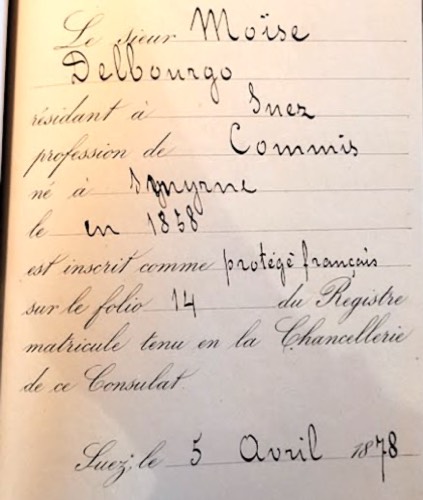 Le sieur Moïse
Delbourgo
résidant à Suez
profession de Commis
né à Smyrne
le en 1858
est inscrit comme protégé français
sur le folio 14 du Registre
matricule tenu en la Chancellerie
de ce Consulat.
Suez, le 5 Avril 1878